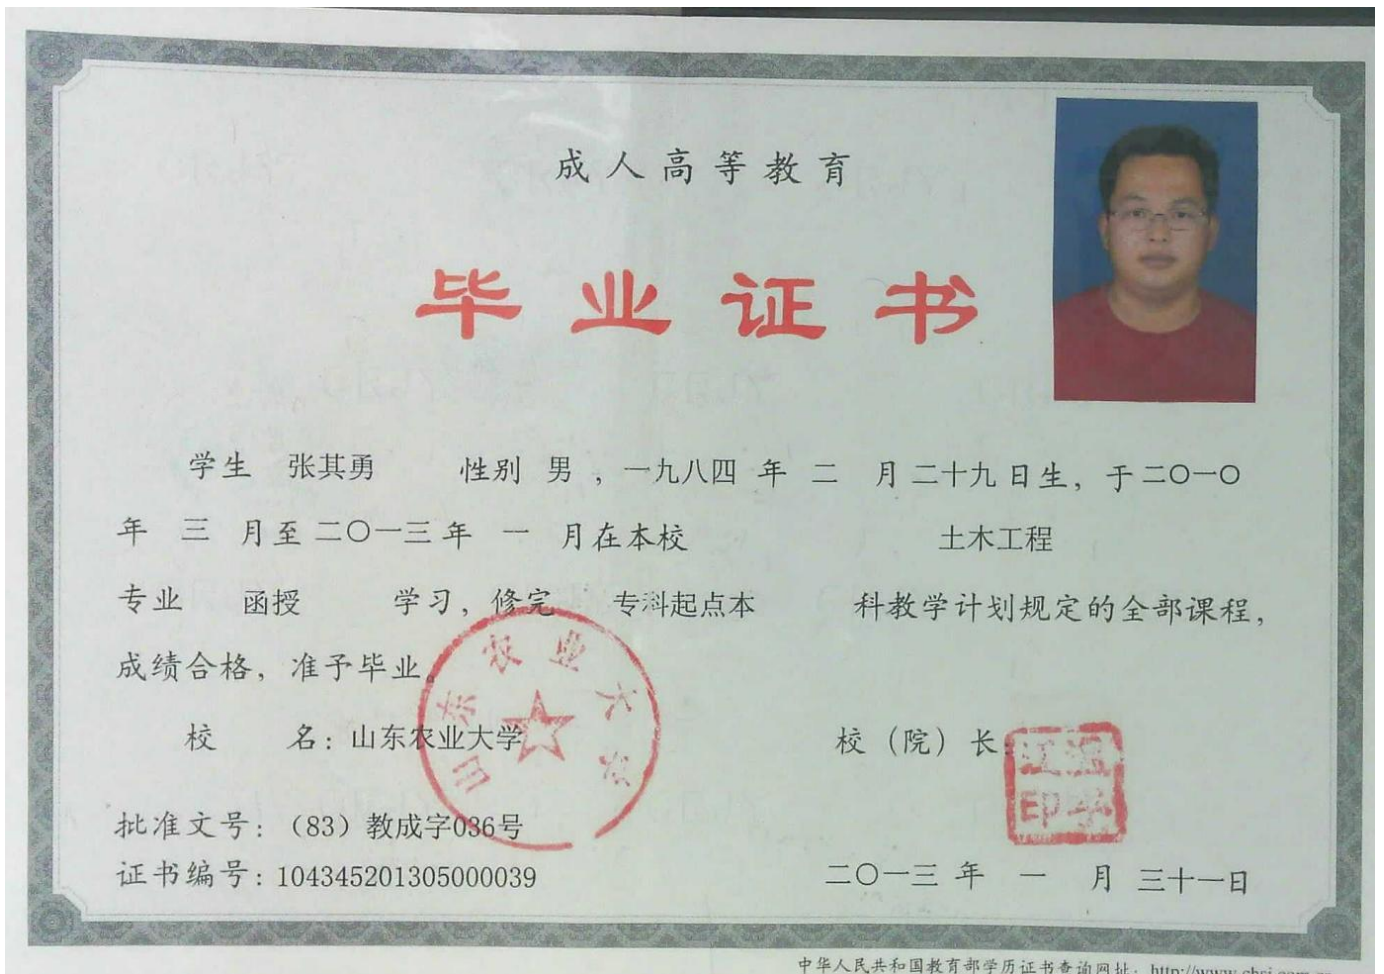 成人高等教育
毕业证书
学生 张其勇 性别 男 ，一九八四 年 二 月二十九日生，于二〇一〇
年 三 月至二〇一三年 一 月在本校 土木工程
专业 函授 学习，修完 专科起点本 科教学计划规定的全部课程，
成绩合格，准予毕业。
山东农业大学
校 名：山东农业大学 校（院）长：
批准文号：（83）教成字036号
证书编号：104345201305000039
二〇一三 年 一 月 三十一日
中华人民共和国教育部学历证书查询网址：http://www.chsi.com